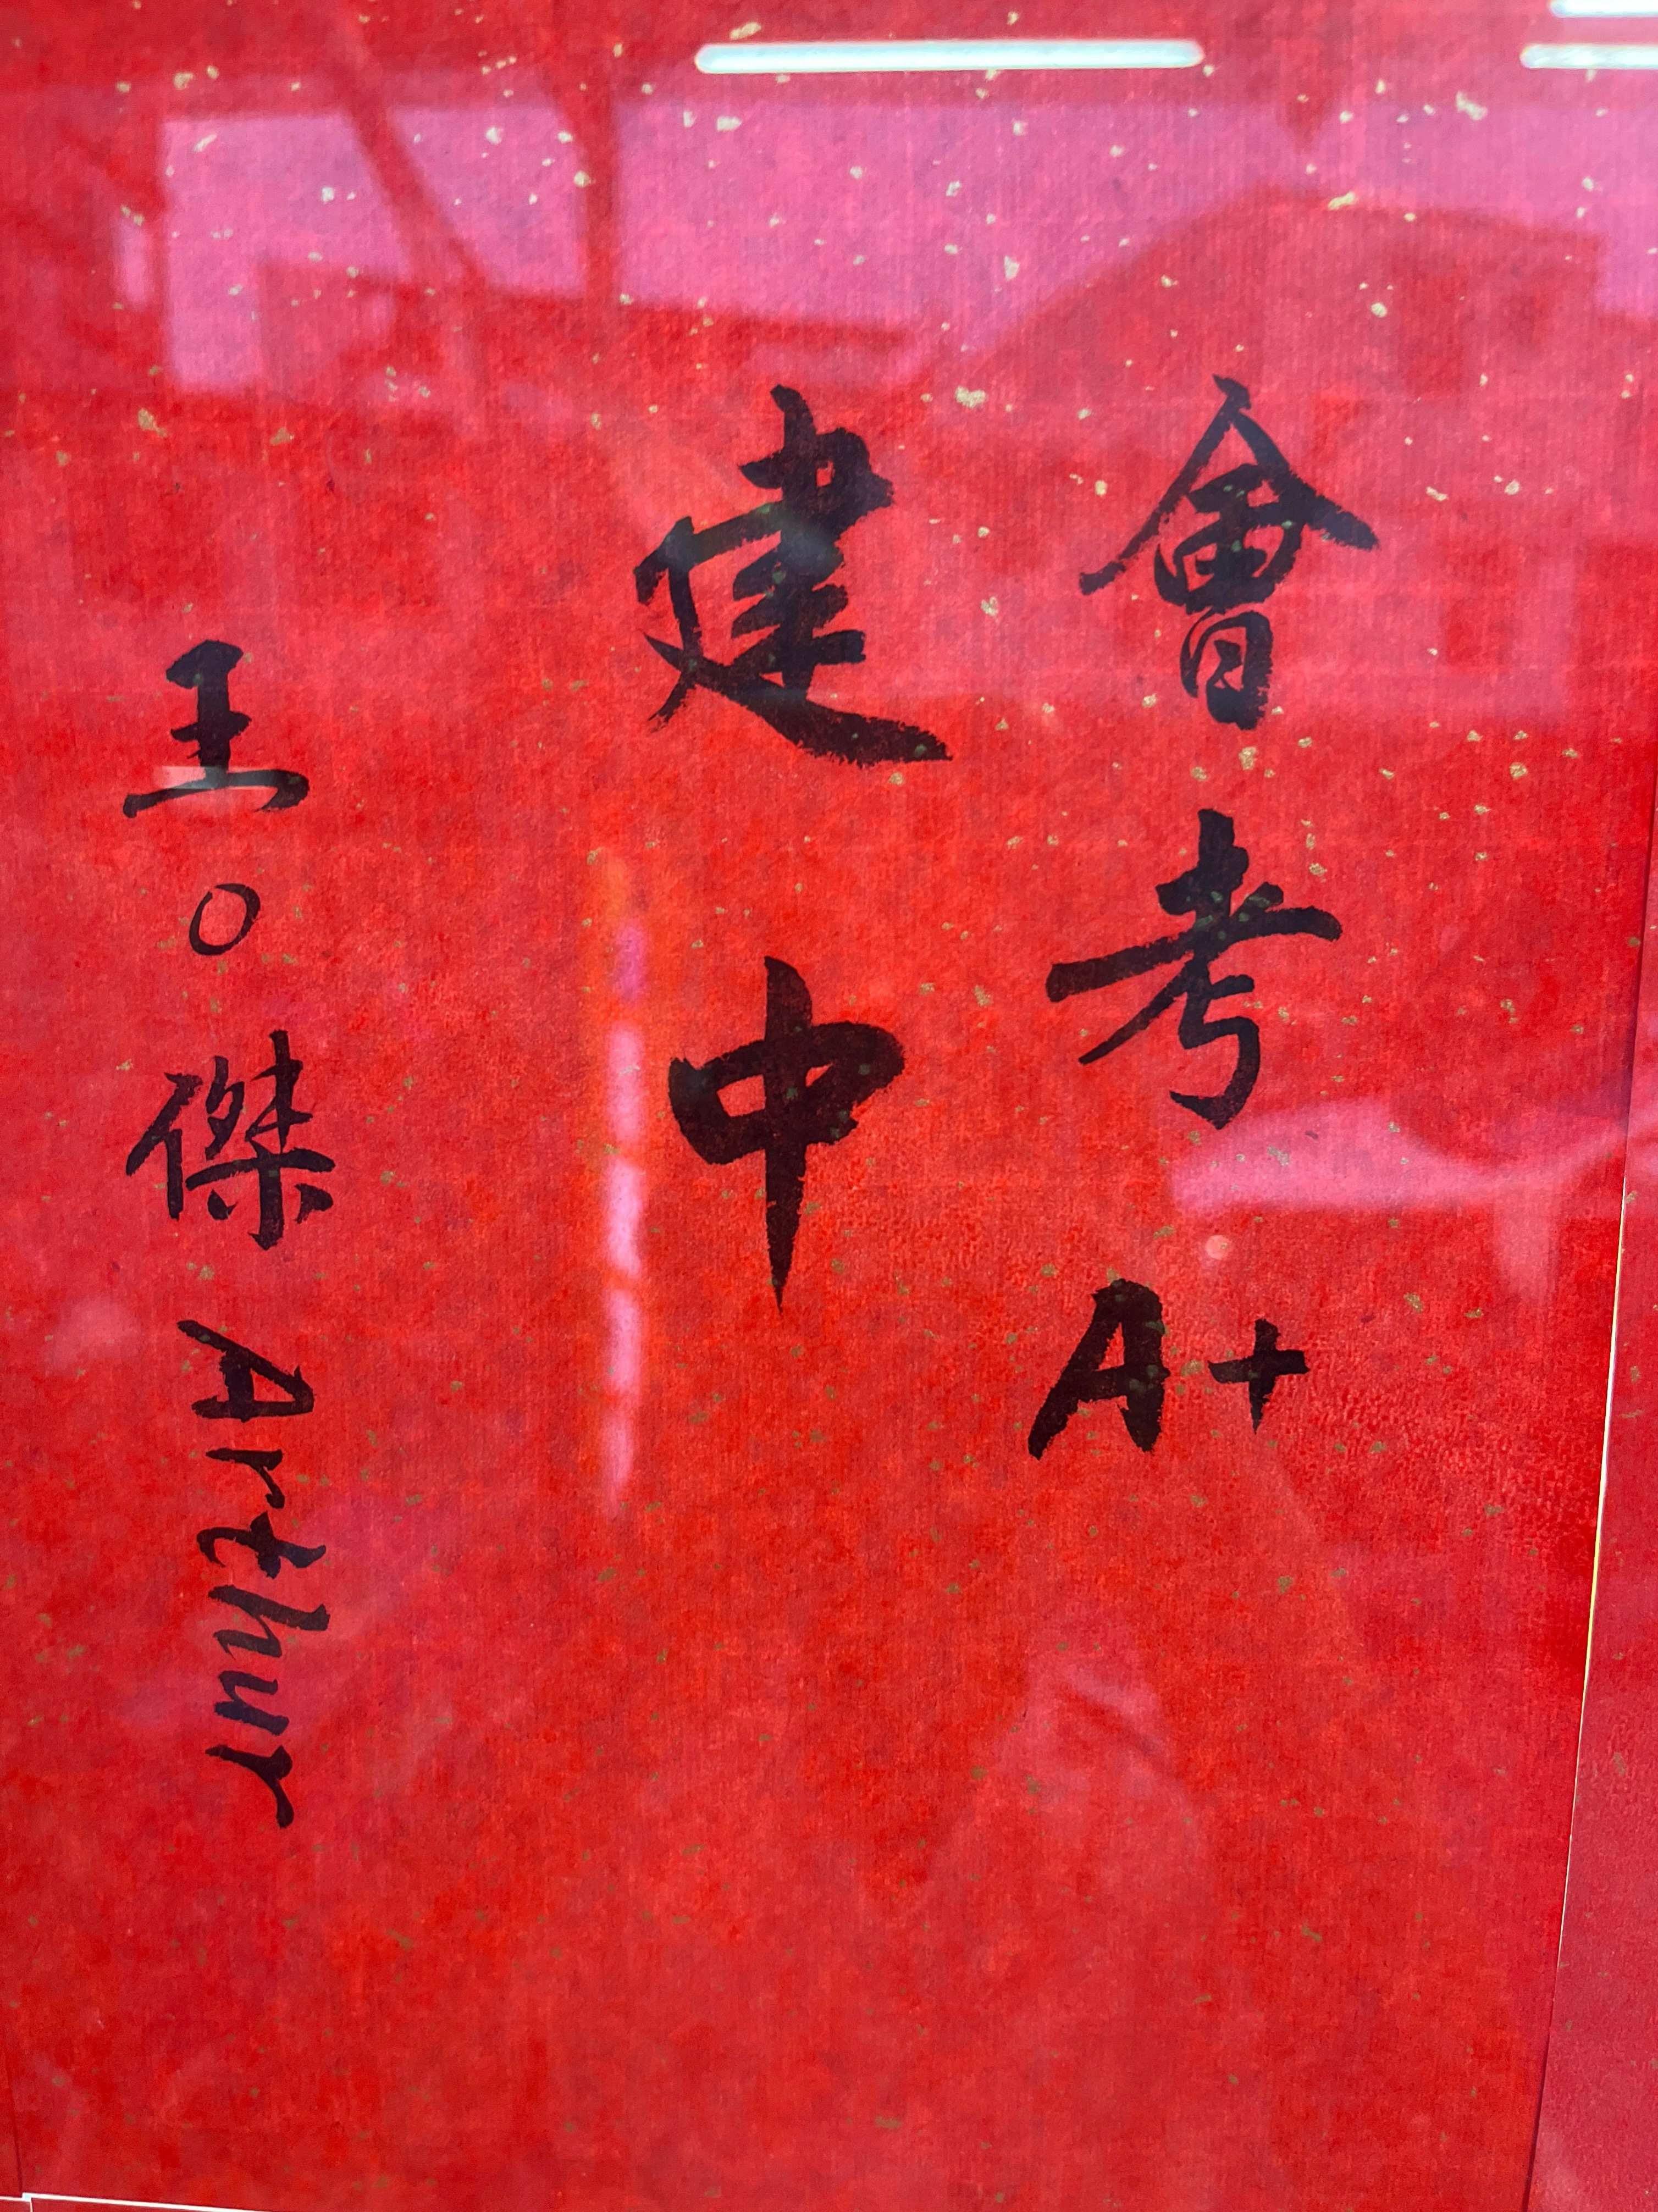 會考A+
建中
王○傑 Arthur